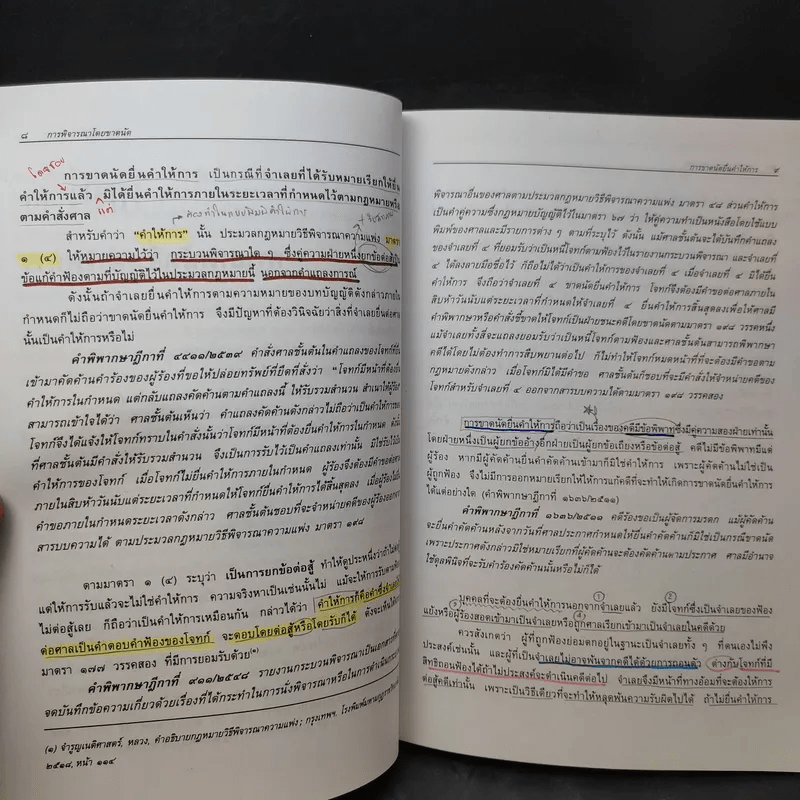 ๘ การพิจารณาโดยขาดนัด
การขาดนัดยื่นคำให้การ เป็นกรณีที่จำเลยที่ได้รับหมายเรียกให้ยื่น
คำให้การแล้ว มิได้ยื่นคำให้การภายในระยะเวลาที่กำหนดไว้ตามกฎหมายหรือ
ตามคำสั่งศาล
สำหรับคำว่า “คำให้การ” นั้น ประมวลกฎหมายวิธีพิจารณาความแพ่ง มาตรา
๑ (๔) ให้หมายความไว้ว่า กระบวนพิจารณาใด ๆ ซึ่งคู่ความฝ่ายหนึ่งยกข้อต่อสู้เป็น
ข้อแก้คำฟ้องตามที่บัญญัติไว้ในประมวลกฎหมายนี้ นอกจากคำแถลงการณ์
ดังนั้นถ้าจำเลยยื่นคำให้การตามความหมายของบทบัญญัติดังกล่าวภายใน
กำหนดก็ไม่ถือว่าขาดนัดยื่นคำให้การ จึงมีปัญหาที่ต้องวินิจฉัยว่าสิ่งที่จำเลยยื่นต่อศาล
นั้นเป็นคำให้การหรือไม่
คำพิพากษาฎีกาที่ ๔๔๑๑/๒๕๓๙ คำสั่งศาลชั้นต้นในคำแถลงของโจทก์ที่ยื่น
เข้ามาคัดค้านคำร้องของผู้ร้องที่ขอให้ปล่อยทรัพย์ที่ยึดที่สั่งว่า “โจทก์มิได้ยื่น
คำให้การในกำหนด แต่กลับแถลงคัดค้านตามคำแถลงนี้ ให้รับรวมสำนวน สำเนาให้ผู้ร้อง”
สามารถเข้าใจได้ว่า ศาลชั้นต้นเห็นว่า คำแถลงคัดค้านดังกล่าวไม่ถือว่าเป็นคำให้การของ
โจทก์จึงได้แจ้งให้โจทก์ทราบในคำสั่งนั้นว่าโจทก์มีหน้าที่ต้องยื่นคำให้การในกำหนด ดังนั้น
ที่ศาลชั้นต้นมีคำสั่งให้รับรวมสำนวน จึงเป็นการรับไว้เป็นคำแถลงเท่านั้น มิใช่รับไว้เป็น
คำให้การของโจทก์ เมื่อโจทก์ไม่ยื่นคำให้การภายในกำหนด ผู้ร้องจึงต้องมีคำขอต่อศาล
ภายในสิบห้าวันนับแต่ระยะเวลาที่กำหนดให้โจทก์ยื่นคำให้การได้สิ้นสุดลง เมื่อผู้ร้องไม่ยื่น
คำขอภายในกำหนดระยะเวลาดังกล่าว ศาลชั้นต้นชอบที่จะจำหน่ายคดีของผู้ร้องออกจาก
สารบบความได้ ตามประมวลกฎหมายวิธีพิจารณาความแพ่ง มาตรา ๑๙๘
ตามมาตรา ๑ (๔) ระบุว่า เป็นการยกข้อต่อสู้ ทำให้ดูประหนึ่งว่าถ้าไม่ต่อสู้
แต่ให้การรับแล้วจะไม่ใช่คำให้การ ความจริงหาเป็นเช่นนั้นไม่ แม้จะให้การรับตามฟ้อง
ไม่ต่อสู้เลย ก็ถือว่าเป็นคำให้การเหมือนกัน กล่าวได้ว่า คำให้การก็คือคำซึ่งจำเลย
ต่อศาลเป็นคำตอบคำฟ้องของโจทก์ จะตอบโดยต่อสู้หรือโดยรับก็ได้ ดังจะเห็นได้จาก
มาตรา ๑๗๗ วรรคสอง ที่มีการยอมรับด้วย(๑)
คำพิพากษาฎีกาที่ ๙๑๑/๒๕๔๘ รายงานกระบวนพิจารณาเป็นเอกสารที่ศาล
จดบันทึกข้อความเกี่ยวด้วยเรื่องที่ได้กระทำในการนั่งพิจารณาหรือในการดำเนินกระบวน
(๑) จำรูญเนติศาสตร์, หลวง, คำอธิบายกฎหมายวิธีพิจารณาความแพ่ง ; กรุงเทพฯ. โรงพิมพ์
๒๕๑๘, หน้า ๑๑๔
การขาดนัดยื่นคำให้การ ๙
พิจารณาอื่นของศาลตามประมวลกฎหมายวิธีพิจารณาความแพ่ง มาตรา ๔๘ ส่วนคำให้การ
เป็นคำคู่ความซึ่งกฎหมายบัญญัติไว้ในมาตรา ๖๗ ว่า ให้คู่ความทำเป็นหนังสือโดยใช้แบบ
พิมพ์ของศาลและมีรายการต่าง ๆ ตามที่ระบุไว้ ดังนั้น แม้ศาลชั้นต้นจะได้บันทึกคำแถลง
ของจำเลยที่ ๔ ที่ยอมรับว่าเป็นหนี้โจทก์ตามฟ้องไว้ในรายงานกระบวนพิจารณา และจำเลยที่
๔ ได้ลงลายมือชื่อไว้ ก็ถือไม่ได้ว่าเป็นคำให้การของจำเลยที่ ๔ เมื่อจำเลยที่ ๔ มิได้ยื่น
คำให้การ จึงถือว่าจำเลยที่ ๔ ขาดนัดยื่นคำให้การ โจทก์จึงต้องมีคำขอต่อศาลภายใน
สิบห้าวันนับแต่ระยะเวลาที่กำหนดให้จำเลยที่ ๔ ยื่นคำให้การสิ้นสุดลงเพื่อให้ศาลมี
คำพิพากษาหรือคำสั่งชี้ขาดให้โจทก์เป็นฝ่ายชนะคดีโดยขาดนัดตามมาตรา ๑๙๘ วรรคหนึ่ง
แม้จำเลยทั้งสี่จะแถลงยอมรับว่าเป็นหนี้โจทก์ตามฟ้องและศาลชั้นต้นสามารถพิพากษา
คดีได้โดยไม่ต้องทำการสืบพยานต่อไป ก็ไม่ทำให้โจทก์หมดหน้าที่ที่จะต้องมีคำขอตาม
กฎหมายดังกล่าว เมื่อโจทก์มิได้มีคำขอ ศาลชั้นต้นก็ชอบที่จะมีคำสั่งให้จำหน่ายคดีของ
โจทก์สำหรับจำเลยที่ ๔ ออกจากสารบบความได้ตามมาตรา ๑๙๘ วรรคสอง
การขาดนัดยื่นคำให้การถือว่าเป็นเรื่องของคดีมีข้อพิพาทซึ่งมีคู่ความสองฝ่ายเท่านั้น
โดยฝ่ายหนึ่งเป็นผู้ยกข้ออ้างอีกฝ่ายเป็นผู้ยกข้อเถียงหรือข้อต่อสู้ คดีไม่มีข้อพิพาทมีแต่
ผู้ร้อง หากมีผู้คัดค้านยื่นคำคัดค้านเข้ามาก็มิใช่คำให้การ เพราะผู้คัดค้านไม่ใช่เป็น
ผู้ถูกฟ้อง จึงไม่มีการออกหมายเรียกให้ให้การแก้คดีที่จะทำให้เกิดการขาดนัดยื่นคำให้การ
ได้แต่อย่างใด (คำพิพากษาฎีกาที่ ๑๖๓๖/๒๕๑๑)
คำพิพากษาฎีกาที่ ๑๖๓๖/๒๕๑๑ คดีร้องขอเป็นผู้จัดการมรดก แม้ผู้คัดค้าน
จะยื่นคำคัดค้านหลังจากวันที่ศาลประกาศกำหนดให้ยื่นคำคัดค้านก็ไม่เป็นกรณีขาดนัด
เพราะประกาศดังกล่าวมิใช่หมายเรียกที่ผู้คัดค้านจะต้องคัดค้านตามประกาศ ศาลมีอำนาจ
ใช้ดุลพินิจที่จะรับคำร้องคัดค้านนั้นหรือไม่ก็ได้
บุคคลที่จะต้องยื่นคำให้การนอกจากจำเลยแล้ว ยังมีโจทก์ซึ่งเป็นจำเลยของฟ้อง
แย้งหรือผู้ร้องสอดเข้ามาเป็นจำเลยหรือถูกศาลเรียกเข้ามาเป็นจำเลยในคดีด้วย
ควรสังเกตว่า ผู้ที่ถูกฟ้องย่อมตกอยู่ในฐานะเป็นจำเลยทั้ง ๆ ที่ตนเองไม่พึง
ประสงค์เช่นนั้น และผู้ที่เป็นจำเลยไม่อาจพ้นจากคดีได้ด้วยการถอนตัว ต่างกับโจทก์ที่มี
สิทธิถอนฟ้องได้ถ้าไม่ประสงค์จะดำเนินคดีต่อไป จำเลยจึงมีหน้าที่ทางอ้อมที่จะต้องให้การ
ต่อสู้คดีเท่านั้น เพราะเป็นวิธีเดียวที่จะทำให้หลุดพ้นความรับผิดไปได้ ถ้าไม่ยื่นคำให้การ